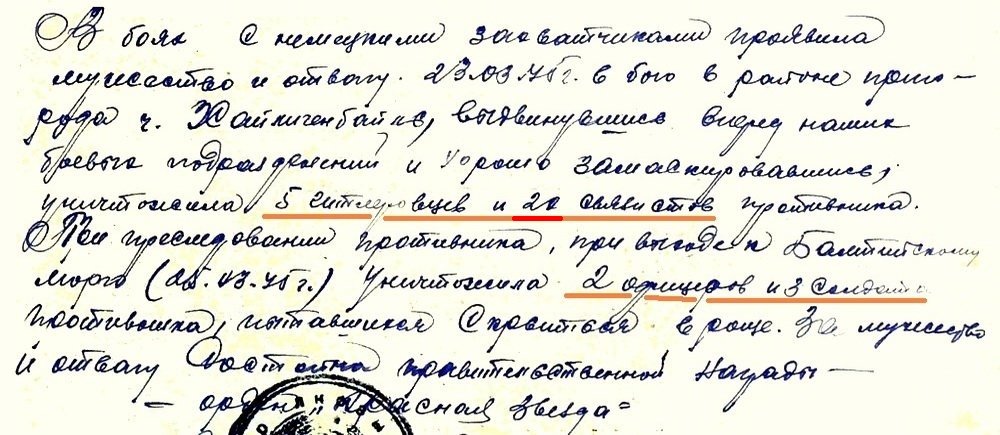 В боях с немецкими захватчиками проявила
мужество и отвагу. 23.03.45г. в бою в районе приго-
рода г. Хайлигенбайль, выдвинувшись вперед наших
боевых подразделений и хорошо замаскировавшись,
уничтожила 5 гитлеровцев и 2х связистов противника.
При преследовании противника, при выходе к Балтийскому
морю (25.03.45г.) уничтожила 2 офицеров и 3 солдата
противника, пытавшихся скрыться в роще. За мужество
и отвагу достойна правительственной награды —
— орден "Красная Звезда"=